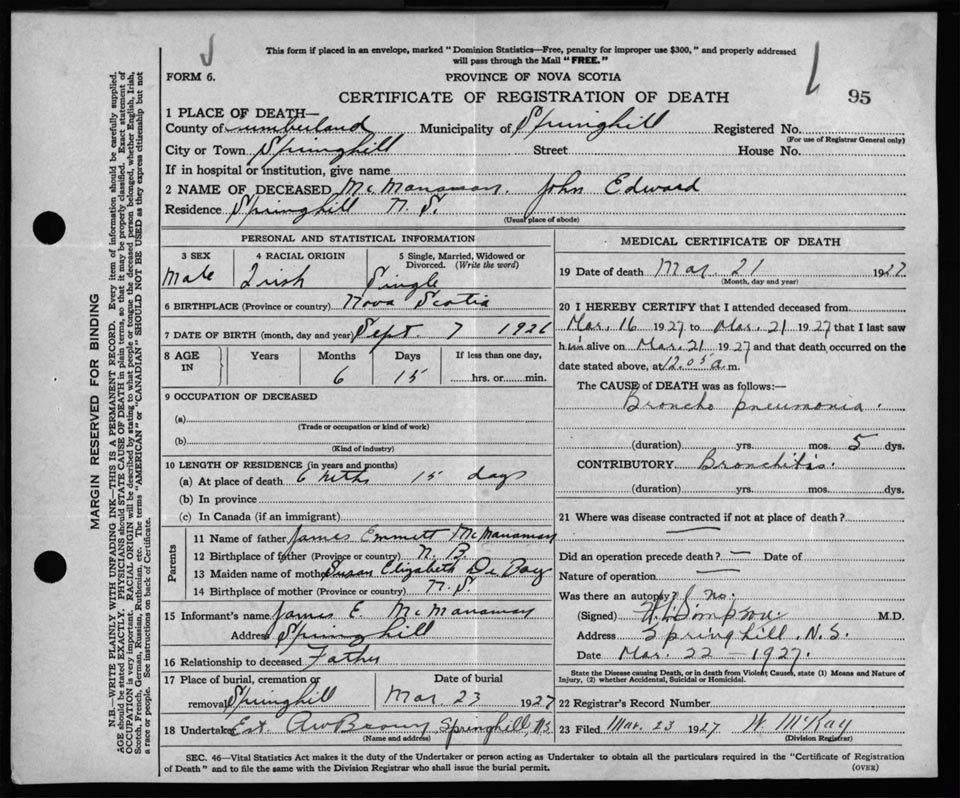 This form if placed in an envelope, marked "Dominion Statistics—Free, penalty for improper use $300," and properly addressed
will pass through the Mail "FREE."
FORM 6.
PROVINCE OF NOVA SCOTIA
CERTIFICATE OF REGISTRATION OF DEATH
95
1 PLACE OF DEATH—
County of Cumberland Municipality of Springhill Registered No.
(For use of Registrar General only)
City or Town Springhill Street House No.
If in hospital or institution, give name
2 NAME OF DECEASED McManaman, John Edward
Residence Springhill N. S.
(Usual place of abode)
PERSONAL AND STATISTICAL INFORMATION
3 SEX 4 RACIAL ORIGIN 5 Single, Married, Widowed or Divorced. (Write the word)
Male Irish Single
6 BIRTHPLACE (Province or country) Nova Scotia
7 DATE OF BIRTH (month, day and year) Sept. 7 1926
8 AGE IN Years Months Days If less than one day,
6 15 hrs. or min.
9 OCCUPATION OF DECEASED
(a)
(Trade or occupation or kind of work)
(b)
(Kind of industry)
10 LENGTH OF RESIDENCE (in years and months)
(a) At place of death 6 mths 15 days
(b) In province
(c) In Canada (if an immigrant)
Parents
11 Name of father James Emmett McManaman
12 Birthplace of father (Province or country) N. B.
13 Maiden name of mother Susan Elizabeth
14 Birthplace of mother (Province or country) N. S.
15 Informant's name James E. McManaman
Address Springhill
16 Relationship to deceased Father
17 Place of burial, cremation or removal Springhill
Date of burial
Mar. 23 1927
18 Undertaker Est. A W Brown Springhill, N.S.
(Name and address)
MEDICAL CERTIFICATE OF DEATH
19 Date of death Mar. 21 1927
(Month, day and year)
20 I HEREBY CERTIFY that I attended deceased from
Mar. 16 1927 to Mar. 21 1927 that I last saw
him alive on Mar. 21 1927 and that death occurred on the
date stated above, at 12.05 a. m.
The CAUSE of DEATH was as follows:—
Broncho pneumonia.
(duration) yrs. mos. 5 dys.
CONTRIBUTORY Bronchitis.
(duration) yrs. mos. dys.
21 Where was disease contracted if not at place of death?
—
Did an operation precede death? — Date of
Nature of operation —
Was there an autopsy? no.
(Signed) Simpson M.D.
Address Springhill, N.S.
Date Mar. 22 – 1927.
State the Disease causing Death, or in death from Violent Causes, state (1) Means and Nature of
Injury, (2) whether Accidental, Suicidal or Homicidal.
22 Registrar's Record Number
23 Filed Mar. 23 1927 W McKay
(Division Registrar)
SEC. 46—Vital Statistics Act makes it the duty of the Undertaker or person acting as Undertaker to obtain all the particulars required in the "Certificate of Registration
of Death" and to file the same with the Division Registrar who shall issue the burial permit. (OVER)
MARGIN RESERVED FOR BINDING
N.B.—WRITE PLAINLY WITH UNFADING INK—THIS IS A PERMANENT RECORD. Every item of information should be carefully supplied.
AGE should be stated EXACTLY. PHYSICIANS should STATE CAUSE OF DEATH in plain terms, so that it may be properly classified. Exact statement of
OCCUPATION is very important. RACIAL ORIGIN will be described by stating to what people or tongue the deceased person belonged, whether English, Irish,
Scotch, French, German, Russian, Ruthenian, etc. The terms "AMERICAN" or "CANADIAN" SHOULD NOT BE USED as they express citizenship but not
a race or people. See instructions on back of Certificate.